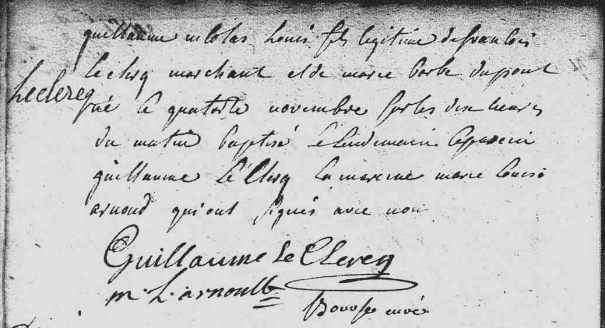 guillaume nicolas Louis fils legitime de francois
Leclerq marchant et de marie barbe dupont
Leclereq
né le quatorse novembre sur les dix heures
du matin baptisé le lendemain le parein
guillaume Le Clerq la mareine marie louise
arnoud qui ont signés avec nous
Guillaume Le Clereq
m. L. arnoult
curé